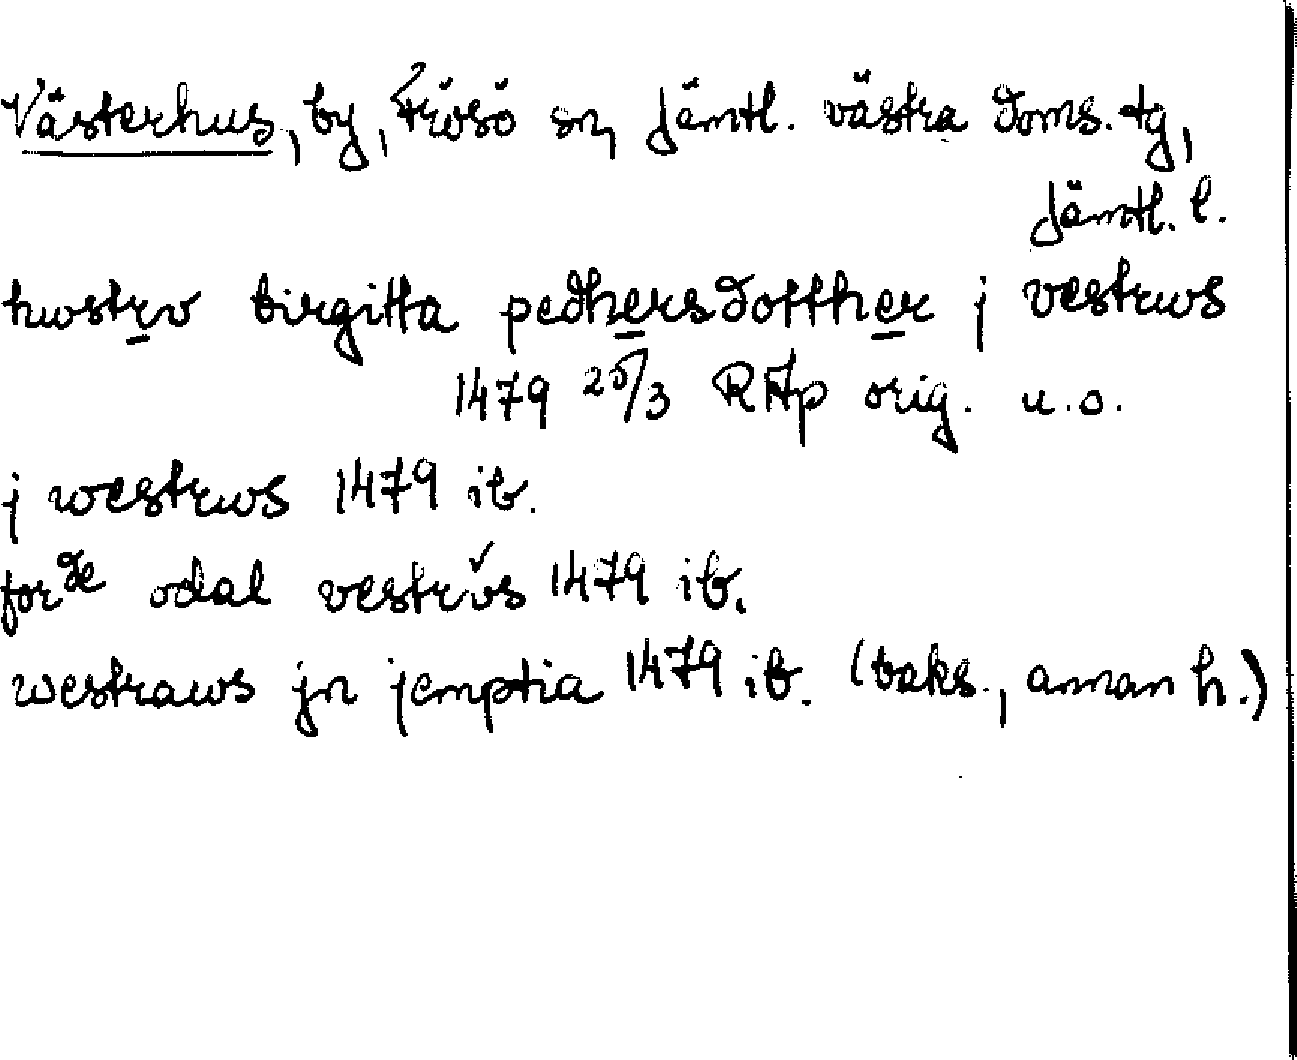 Västerhus, by, Frösö sn, Jämtl. västra doms. tg,
Jämtl. l.
hwstrv birgitta pedhersdotther j vestrws
1479 25/3 RAp orig. u.o.
j westrws 1479 ib.
for de odal vestrv̌s 1479 ib.
westraws jn jemptia 1479 ib. (baks., annan h.)